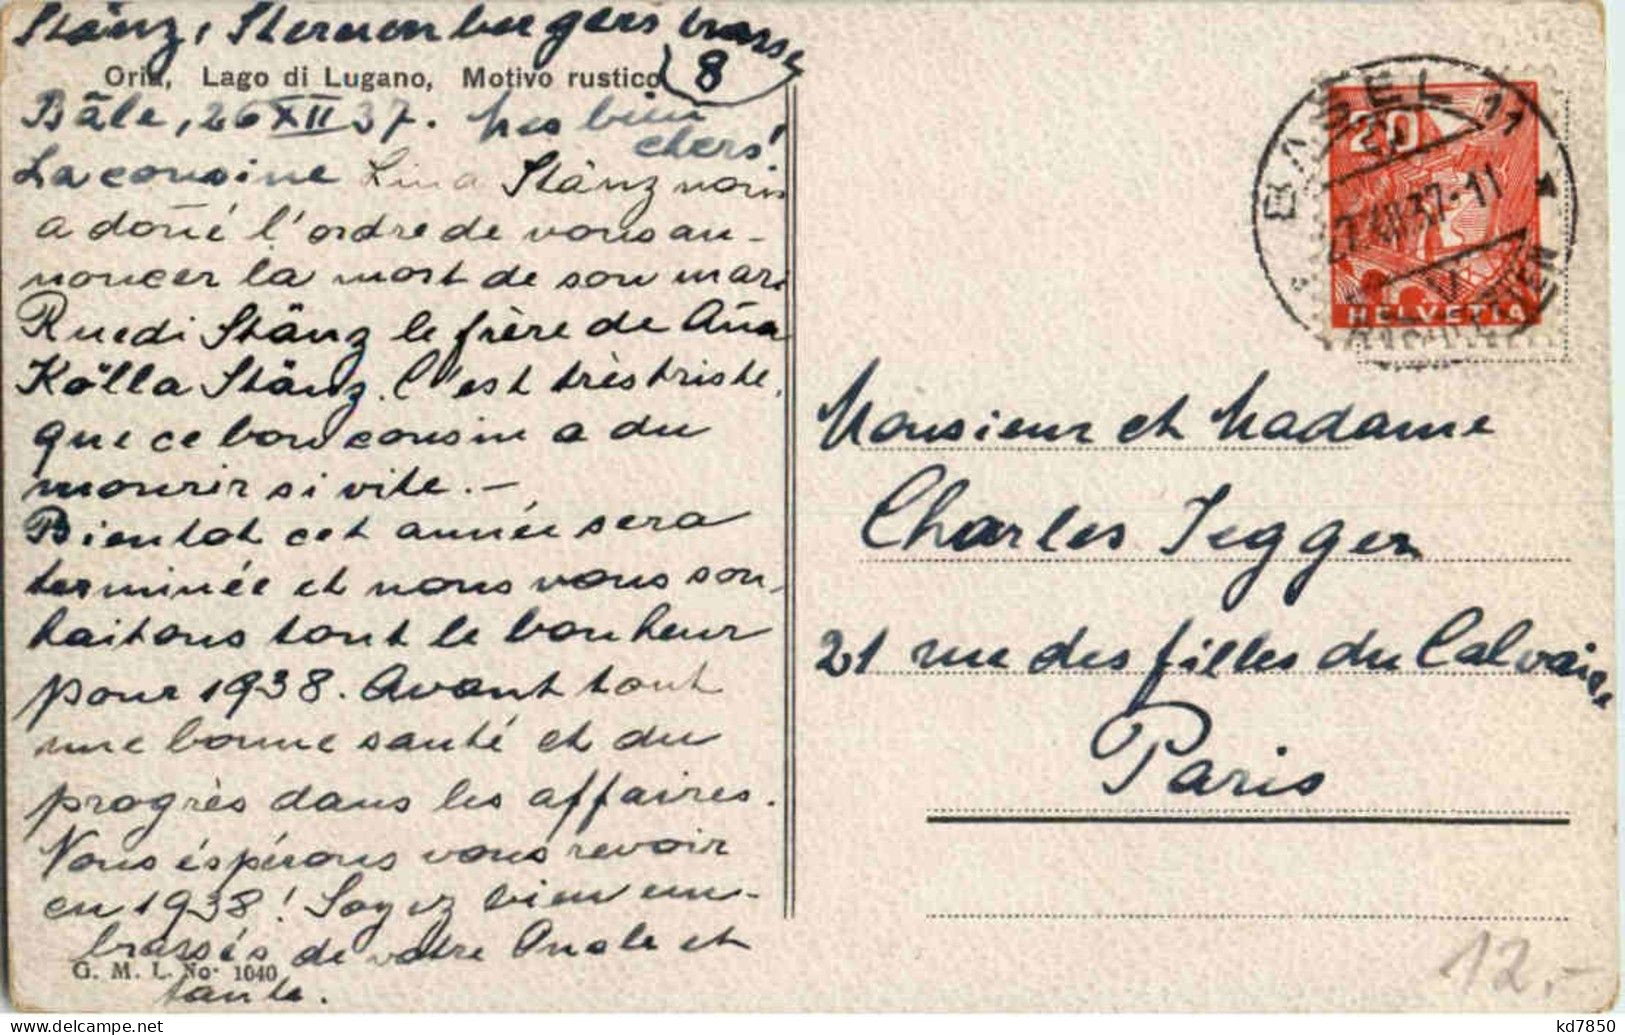 Stänz, Sternenbergerstrasse
8
Oria, Lago di Lugano, Motivo rustico
Bâle, 26 XII 37. Mes bien
chers!
La cousine Lina Stänz nous
a doñé l'ordre de vous an-
noncer la mort de son mari
Ruedi Stänz le frère de Aña
Kölla Stänz. C'est très triste,
que ce bon cousin a du
mourir si vite. —
Bientot cet année sera
terminée et nous vous sou-
haitons tout le bonheur
pour 1938. Avant tout
une bonne santé et du
progrès dans les affaires.
Nous éspérons vous revoir
en 1938! Soyez bien em-
brassés de votre Oncle et
tante.
G. M. L. No. 1040
BASEL 11
27.XII.37-11
V
20
HELVETIA
Monsieur et Madame
Charles Jegger
21 rue des filles du Calvaire
Paris
12.-
kd7850